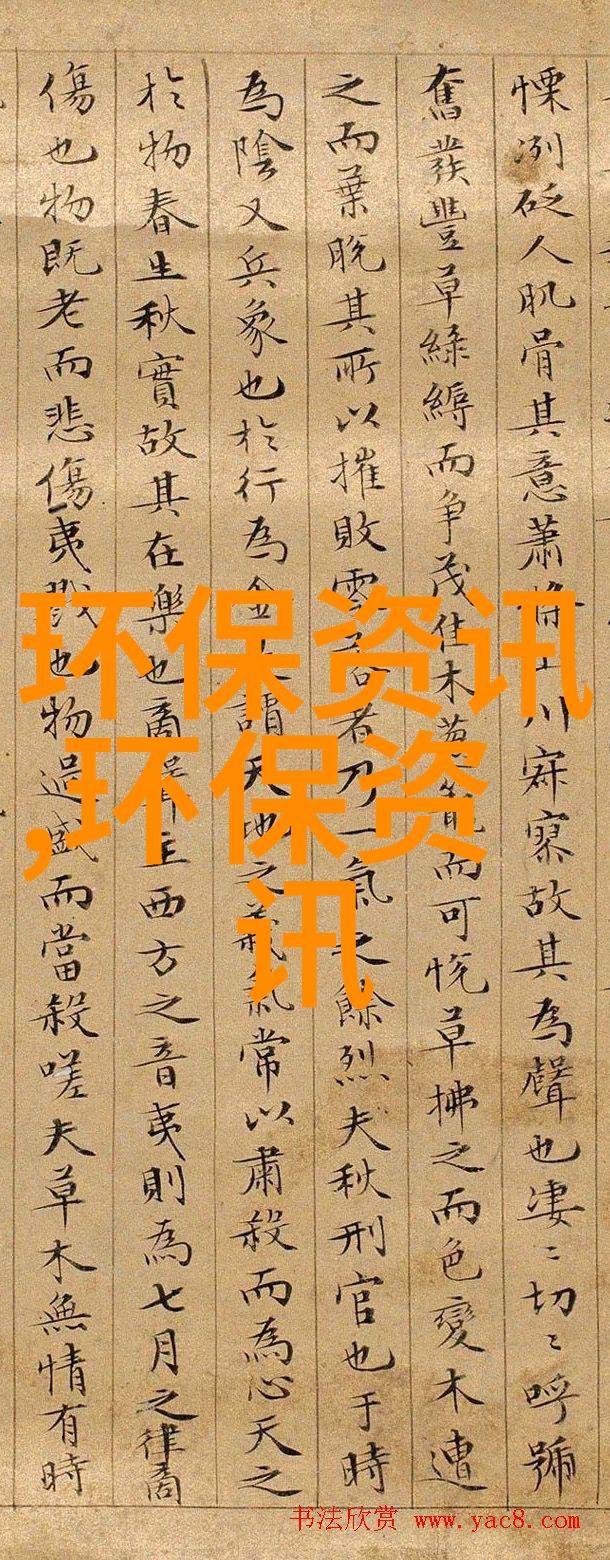 慄冽砭人肌骨其意蕭條山川寂寥故其為聲也凄〻切〻呼號
奮發豐草綠縟而争茂佳木葱籠而可悅草拂之而色變木遭
之而葉脫其所以摧敗零落者乃一氣之餘烈夫秋刑官也于時
為陰又兵象也於行為金是謂天地之義氣常以肅殺而為心天之
於物春生秋實故其在樂也商聲主西方之音夷則為七月之律商
傷也物既老而悲傷夷戮也物過盛而當殺嗟夫草木無情有時
环保资讯
,环保资
讯
书法欣赏 www.yac8.com